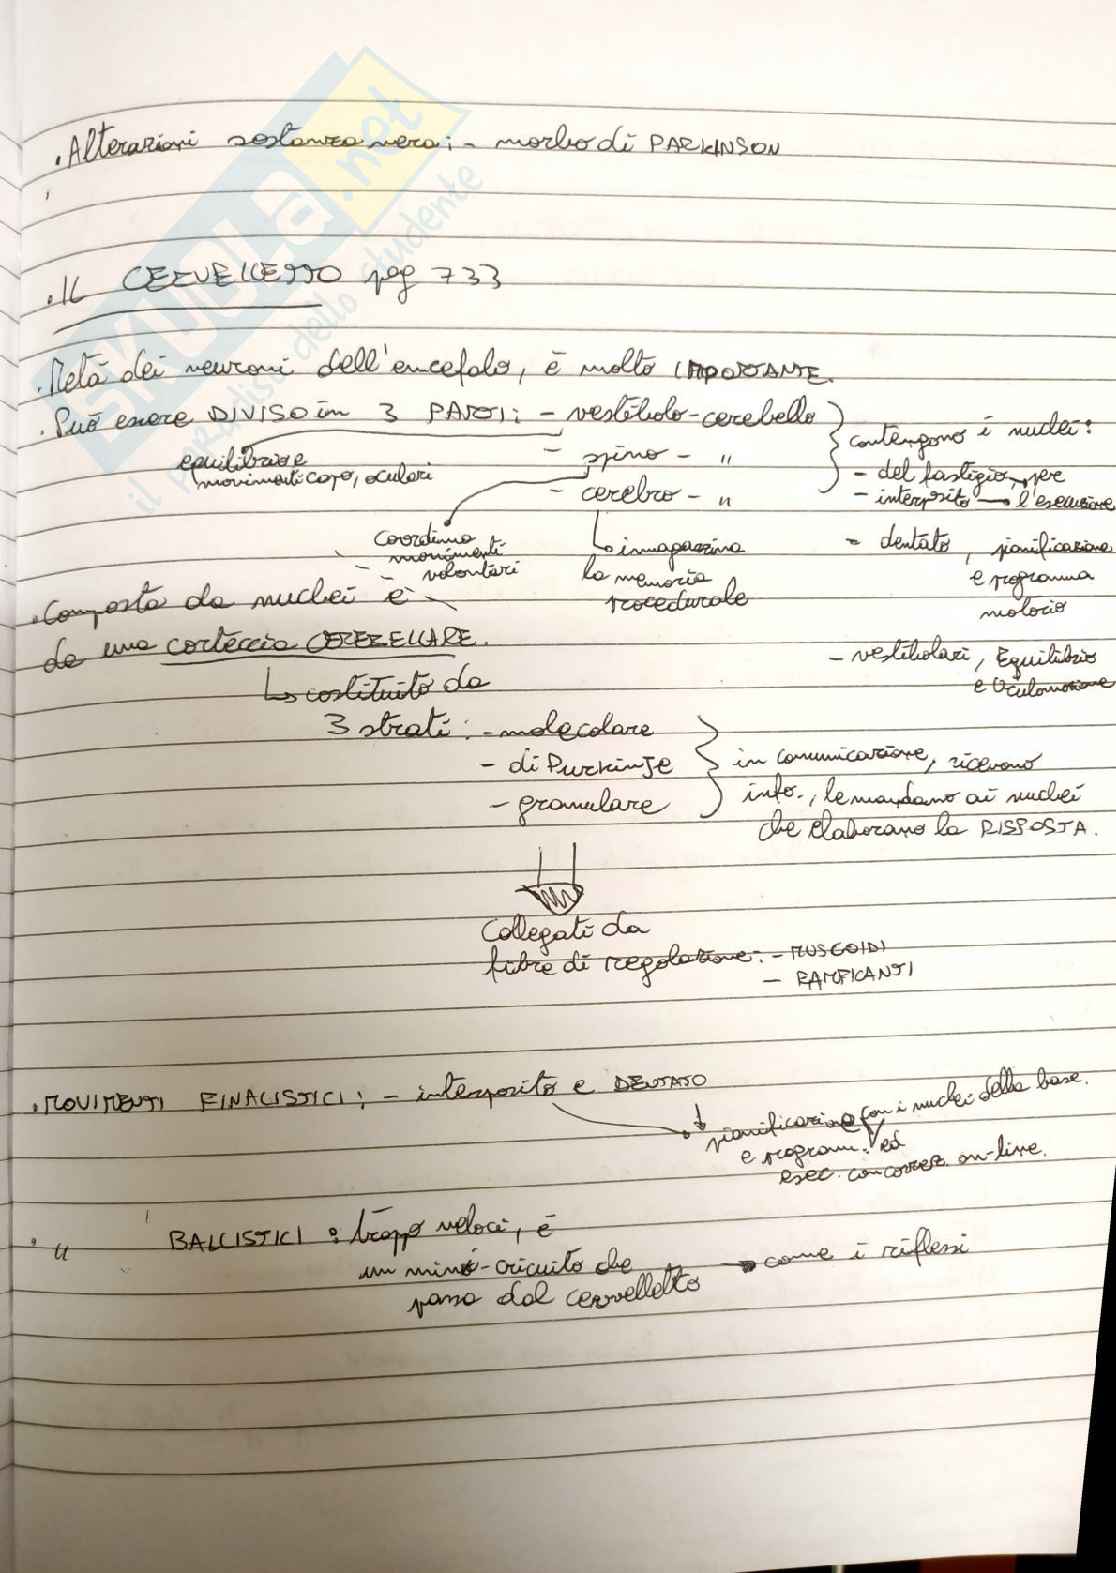 . Alterazioni sostanza nera: - morbo di PARKINSON
. IL CERVELLETTO pag 733
. Metà dei neuroni dell'encefalo, è molto IMPORTANTE.
. Può essere DIVISO in 3 PARTI: - vestibolo-cerebello
- spino - "
- cerebro - "
equilibrio e
movimenti capo, oculari
contengono i nuclei:
- del fastigio, per
- interposito l'esecuzione
- dentato, pianificazione
e programma
motorio
- vestibolari, Equilibrio
e Oculomozione
Coordina
movimenti
volontari
immagazzina
la memoria
procedurale
. Composto da nuclei e
da una corteccia CEREBELLARE.
costituito da
3 strati: - molecolare
- di Purkinje
- granulare
in comunicazione, ricevono
info., le mandano ai nuclei
che elaborano la RISPOSTA.
Collegati da
fibre di regolazione: - MUSCOIDI
- RAMPICANTI
. MOVIMENTI FINALISTICI: - interposito e DENTATO
pianificazione con i nuclei della base.
e program. ed
esec. con correz. on-line.
. " BALLISTICI: troppo veloci, è
un mini-circuito che
passa dal cervelletto
come i riflessi
SKUOLA.net
il paradiso dello studente